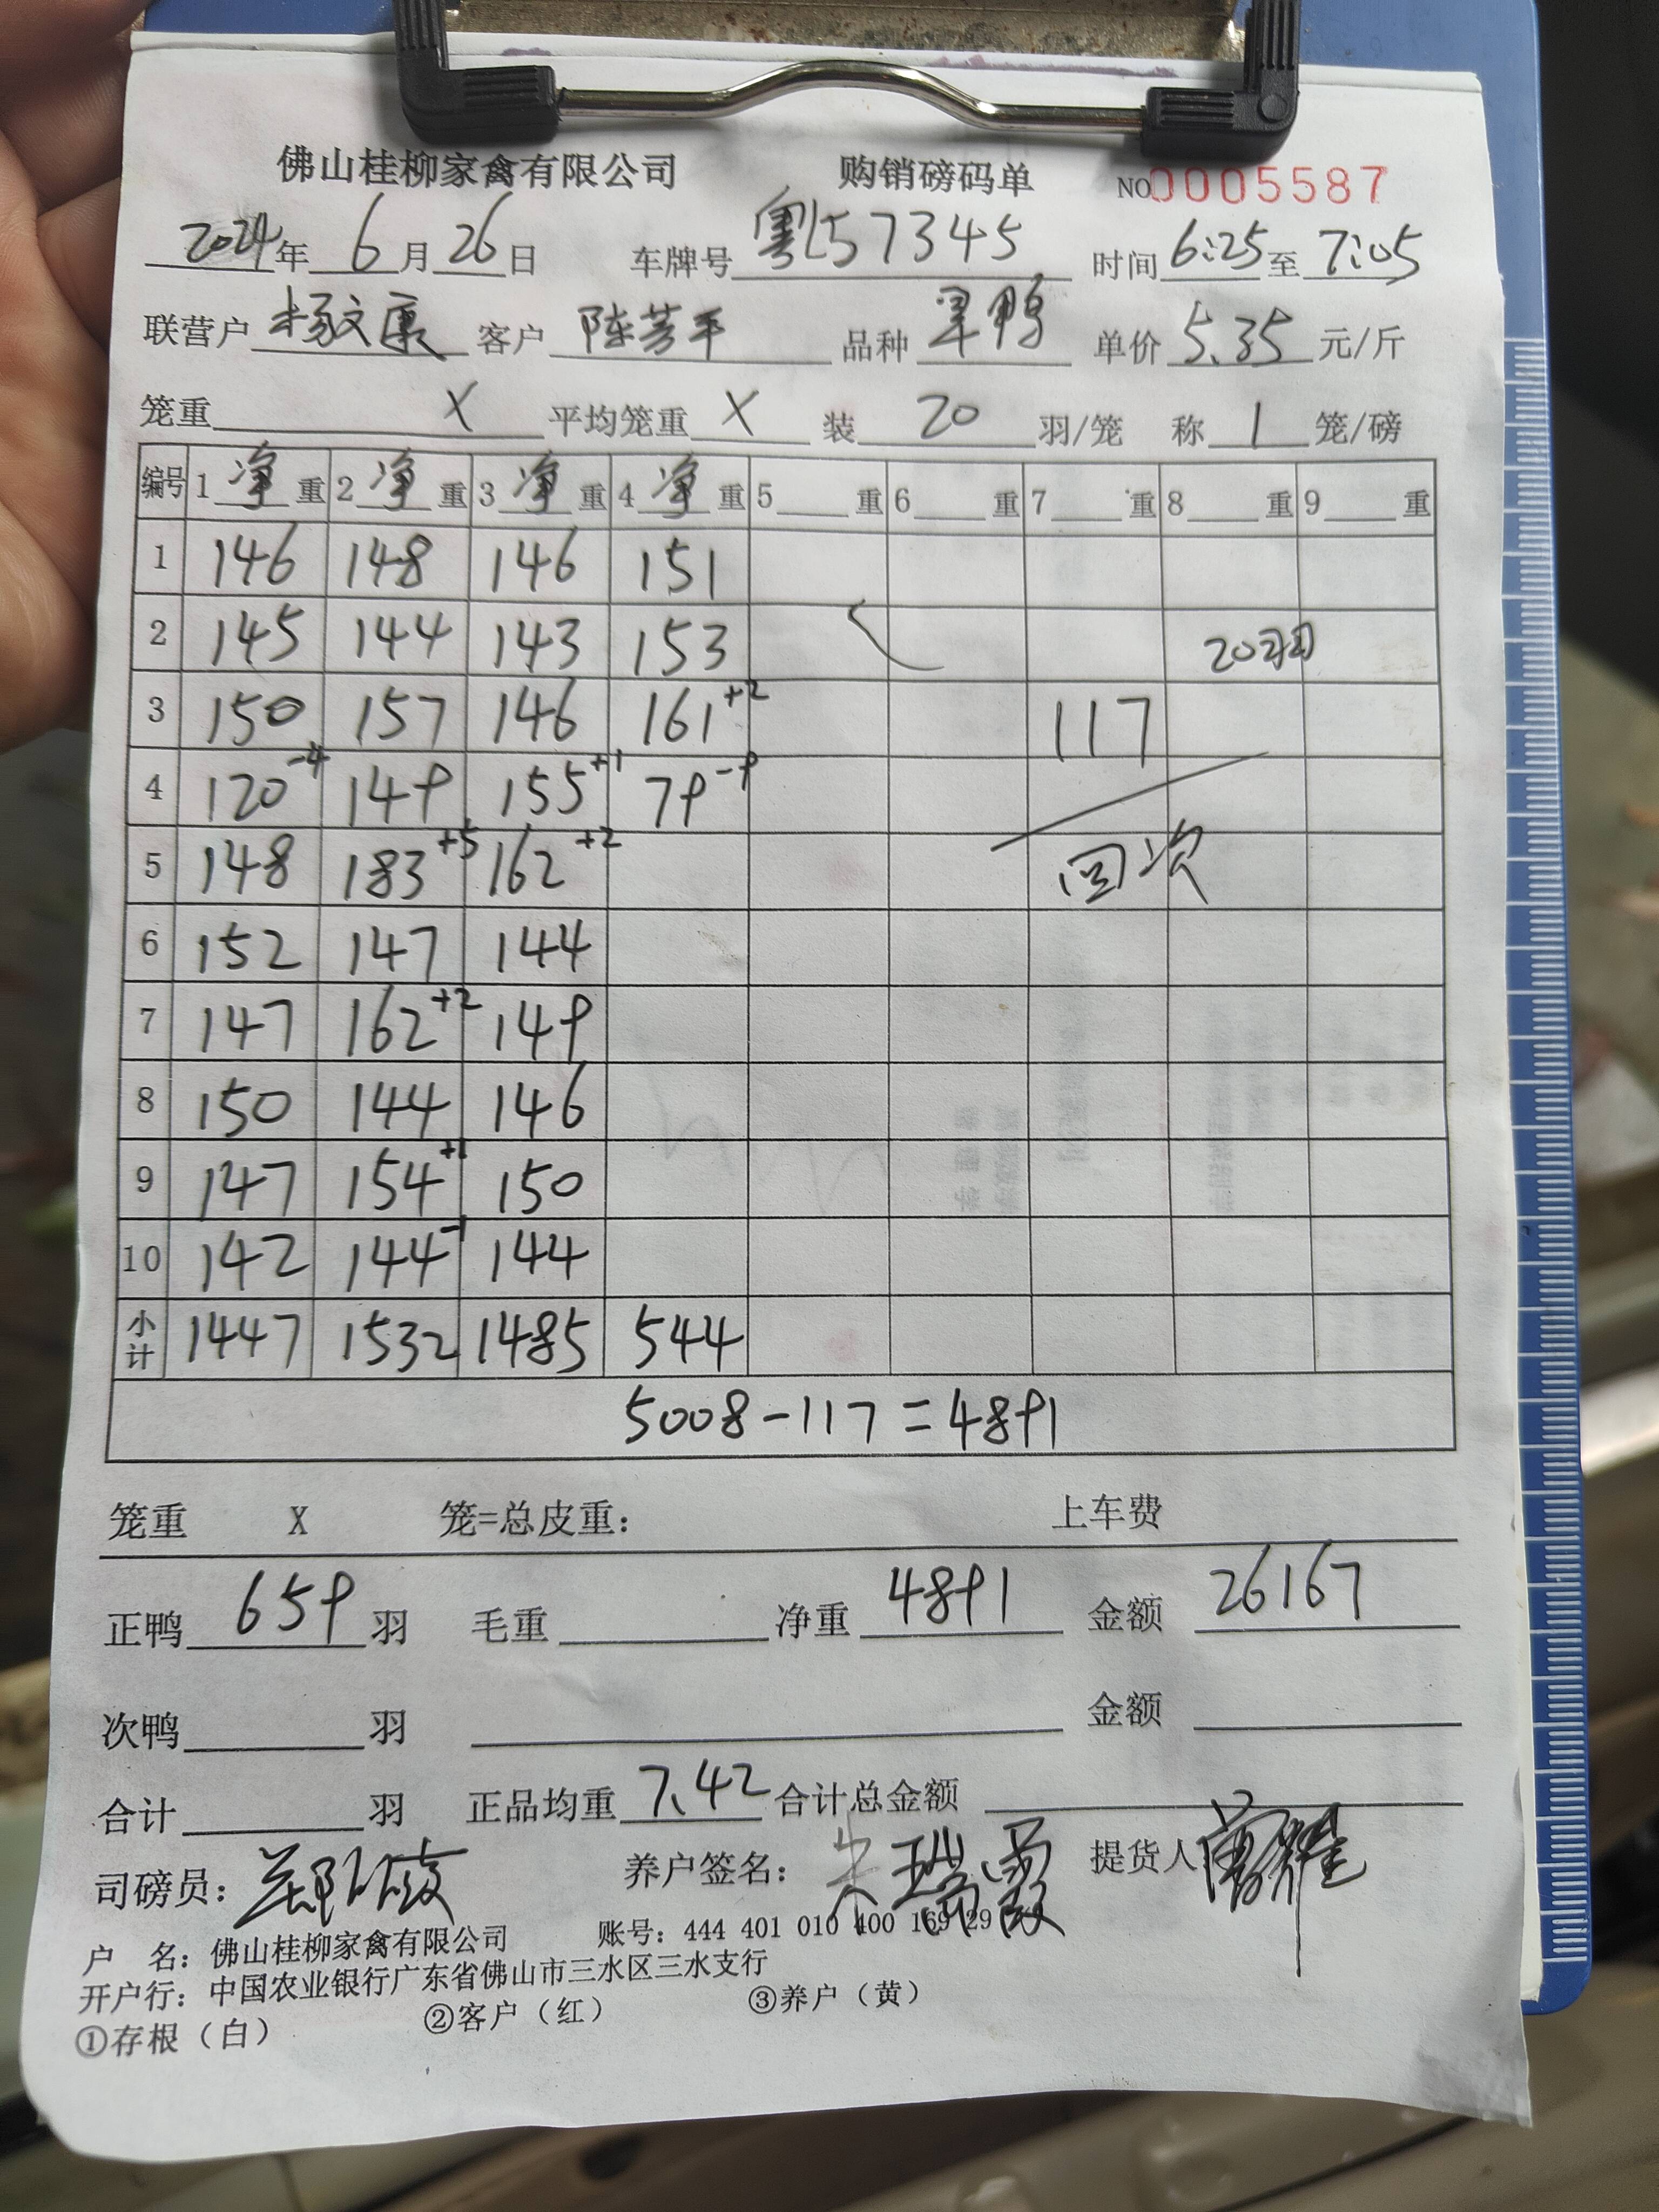 佛山桂柳家禽有限公司 购销磅码单 NO0005587
2024年 6月 26日 车牌号 粤L57345 时间 6:25 至 7:05
联营户 杨文康 客户 陈芳平 品种 旱鸭 单价 5.35 元/斤
笼重 X 平均笼重 X 装 20 羽/笼 称 1 笼/磅
编号 1净重 2净重 3净重 4净重 5重 6重 7重 8重 9重
1 146 148 146 151
2 145 144 143 153 20羽
3 150 157 146 161+2 117
4 120-4 149 155+1 79-9
5 148 183+5 162+2 回次
6 152 147 144
7 147 162+2 149
8 150 144 146
9 147 154+1 150
10 142 144-1 144
小计 1447 1532 1485 544
5008-117=4891
笼重 X 笼=总皮重: 上车费
正鸭 659 羽 毛重 净重 4891 金额 26167
次鸭 羽 金额
合计 羽 正品均重 7.42 合计总金额
司磅员: 养户签名: 朱瑞霞 提货人
户 名: 佛山桂柳家禽有限公司 账号: 444 401 010 400 169 29
开户行: 中国农业银行广东省佛山市三水区三水支行
①存根(白) ②客户(红) ③养户(黄)